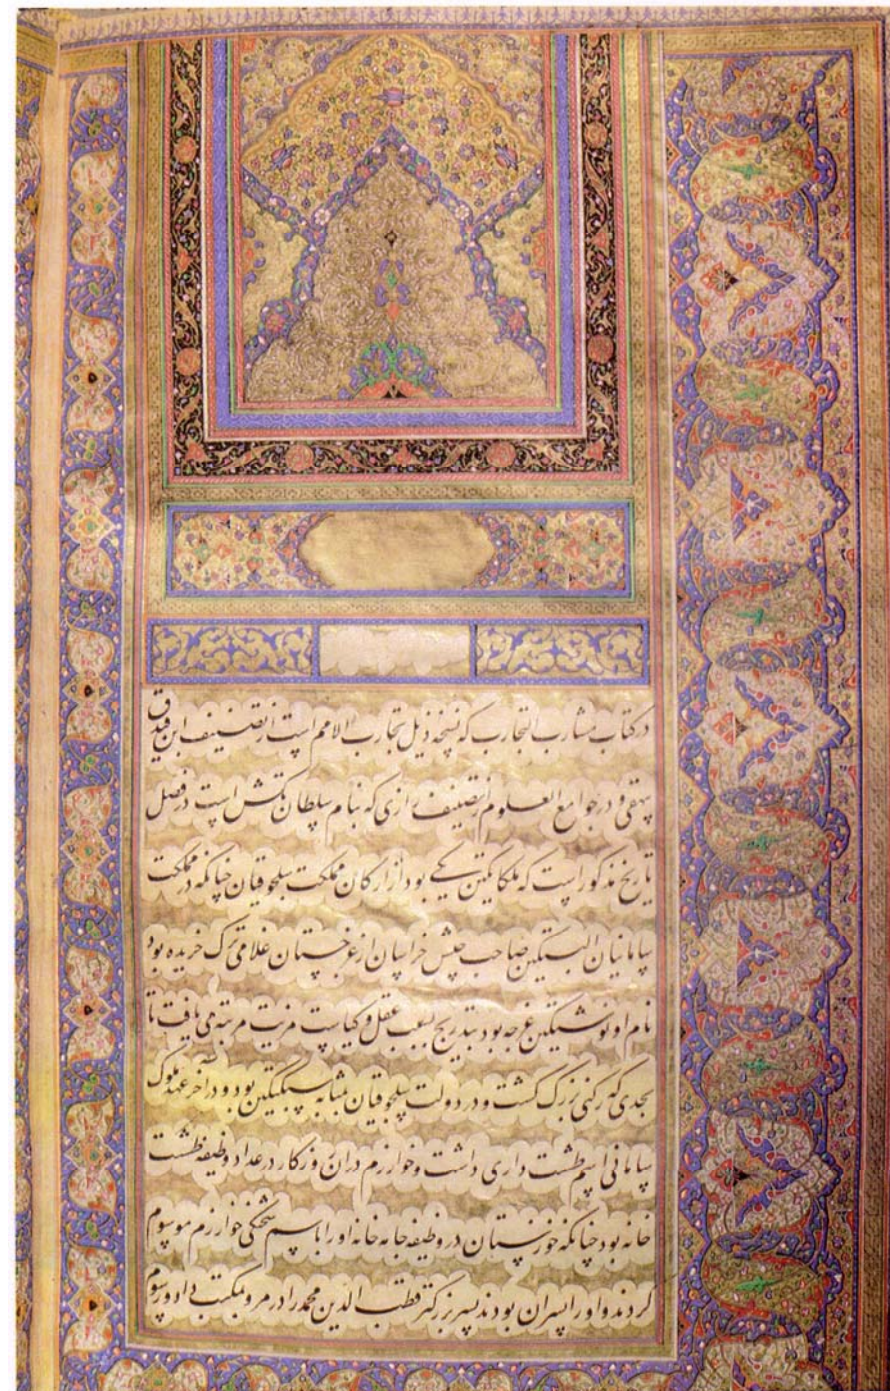 در کتاب مشارب التجارب که نسخه ذیل تجارب الامم است از تصنیف ابن فندق
بیهقی و در جوامع العلوم از تصنیف رازی که بنام سلطان تکش است در فصل
تاریخ مذکور است که ملکاتکین یکی بود از ارکان مملکت سلجوقیان چنانکه در مملکت
سامانیان البتکین صاحب جیش خراسان از غرجستان غلامی ترک خریده بود
نام او نوشتکین غرجه بود بتدریج بسبب عقل و کیاست مزیت مرتبه می یافت تا
بحدی که رکنی بزرک کشت و در دولت سلجوقیان بمثابه سبکتکین بود و در آخر عهد ملوک
سامانی اسم طشت داری داشت و خوارزم در آن روزکار در عداد وظیفه طشت
خانه بود چنانکه خوزستان در وظیفه جامه خانه او را باسم شحنکی خوارزم موسوم
کردند و او را پسران بودند پسر بزرکتر قطب الدین محمد را در مرو بمکتب داد و رسوم